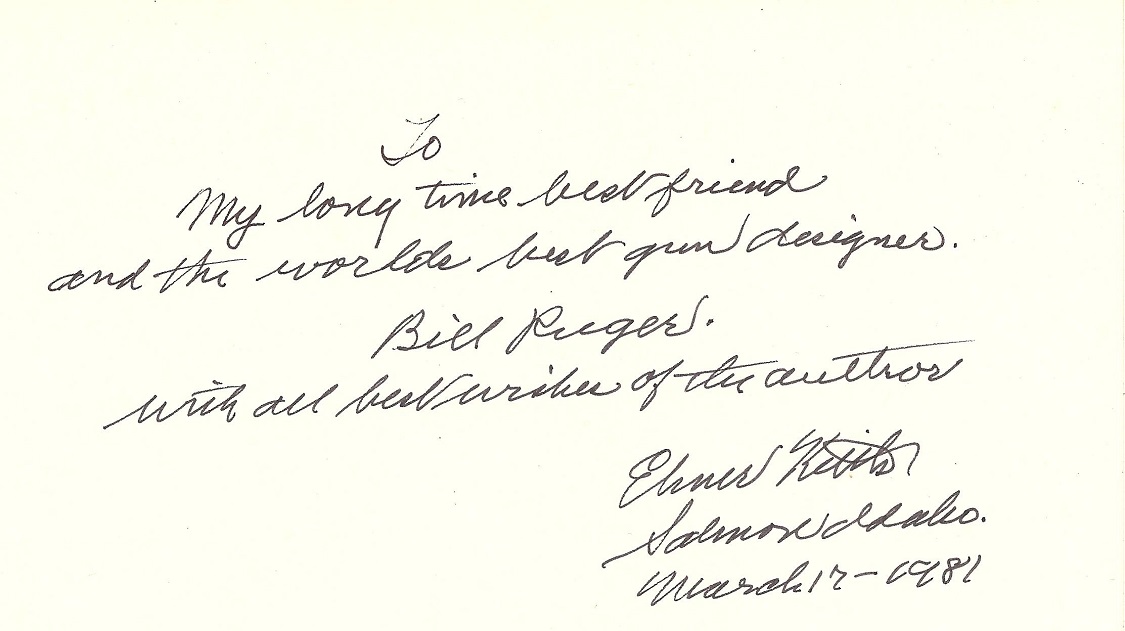 To
My long time best friend
and the worlds best gun designer.
Bill Ruger.
with all best wishes of the author
Elmer Keith
Salmon Idaho.
March 17-1981